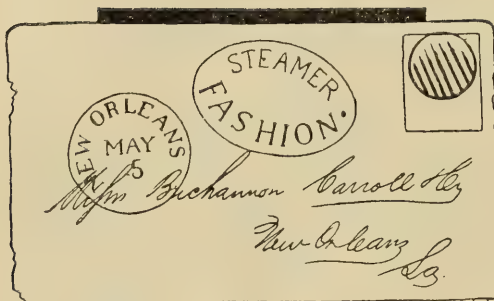 STEAMER
FASHION.
NEW ORLEANS
MAY
5
Buchannon Carroll
New Orleans
La.